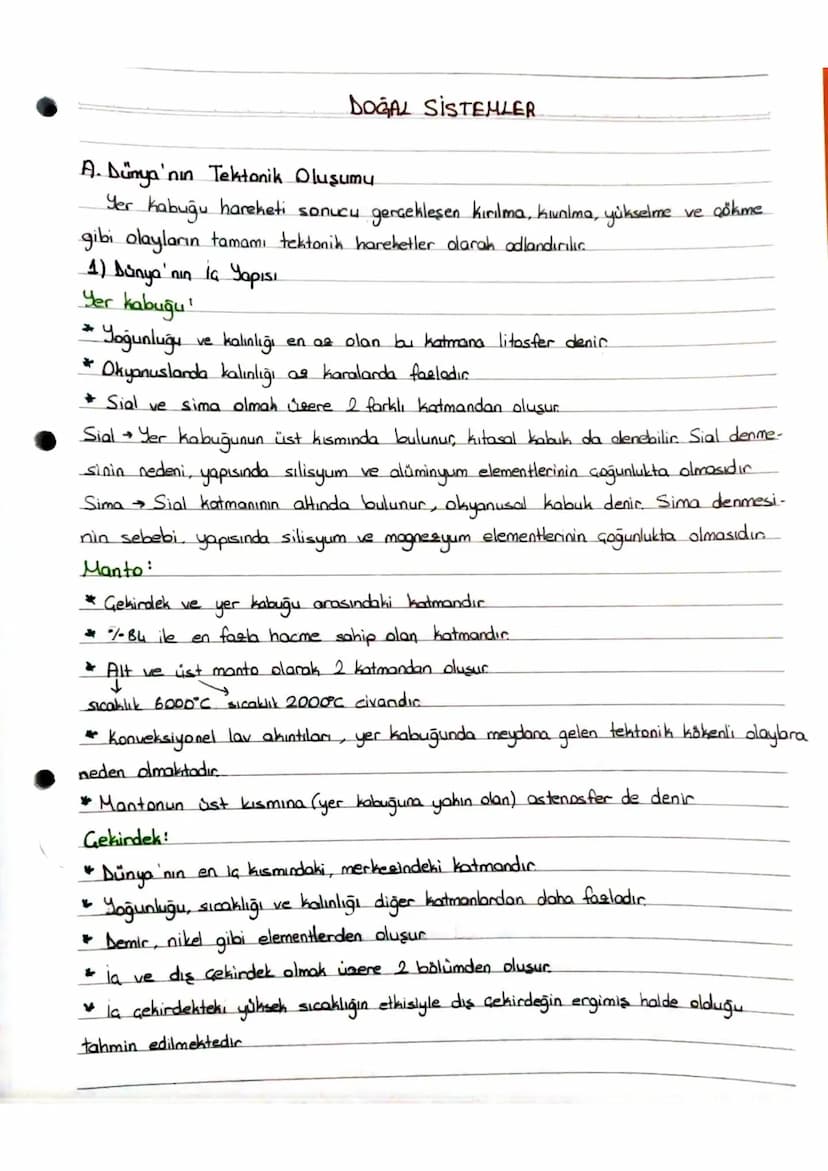 DOĞAL SİSTEMLER
A. Dünya'nın Tektonik Oluşumu
Yer kabuğu hareketi sonucu gerçekleşen kırılma, kıvrılma, yükselme ve çökme
gibi olayların tamamı tektonik hareketler olarak adlandırılır.
1) Dünya'nın İç Yapısı
Yer kabuğu:
* Yoğunluğu ve kalınlığı en az olan bu katmana litosfer denir.
* Okyanuslarda kalınlığı az karalarda fazladır.
* Sial ve sima olmak üzere 2 farklı katmandan oluşur.
Sial → Yer kabuğunun üst kısmında bulunur, kıtasal kabuk da denebilir. Sial denme-
sinin nedeni, yapısında silisyum ve alüminyum elementlerinin çoğunlukta olmasıdır.
Sima → Sial katmanının altında bulunur, okyanusal kabuk denir. Sima denmesi-
nin sebebi, yapısında silisyum ve magnezyum elementlerinin çoğunlukta olmasıdır.
Manto:
* Çekirdek ve yer kabuğu arasındaki katmandır.
* %84 ile en fazla hacme sahip olan katmandır.
* Alt ve üst manto olarak 2 katmandan oluşur.
sıcaklık 6000°C sıcaklık 2000°C civarıdır.
* Konveksiyonel lav akıntıları, yer kabuğunda meydana gelen tektonik kökenli olaylara
neden olmaktadır.
* Mantonun üst kısmına (yer kabuğuna yakın olan) astenosfer de denir
Çekirdek:
* Dünya'nın en iç kısmındaki, merkezindeki katmandır.
* Yoğunluğu, sıcaklığı ve kalınlığı diğer katmanlardan daha fazladır.
* Demir, nikel gibi elementlerden oluşur.
* İç ve dış çekirdek olmak üzere 2 bölümden oluşur.
* İç çekirdekteki yüksek sıcaklığın etkisiyle dış çekirdeğin ergimiş halde olduğu
tahmin edilmektedir.